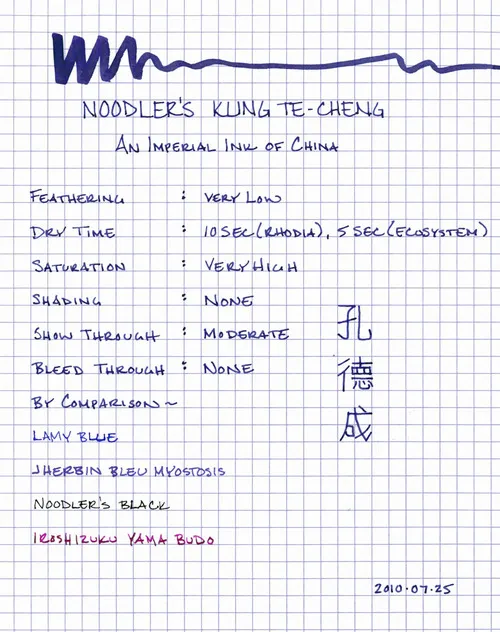 NOODLER'S KUNG TE-CHENG
AN IMPERIAL INK OF CHINA
FEATHERING : VERY LOW
DRY TIME : 10 SEC (RHODIA), 5 SEC (ECOSYSTEM)
SATURATION : VERY HIGH
SHADING : NONE
SHOW THROUGH : MODERATE
BLEED THROUGH : NONE
BY COMPARISON ~
LAMY BLUE
J HERBIN BLEU MYOSTOSIS
NOODLER'S BLACK
IROSHIZUKU YAMA BUDO
孔
德
成
2010.07.25